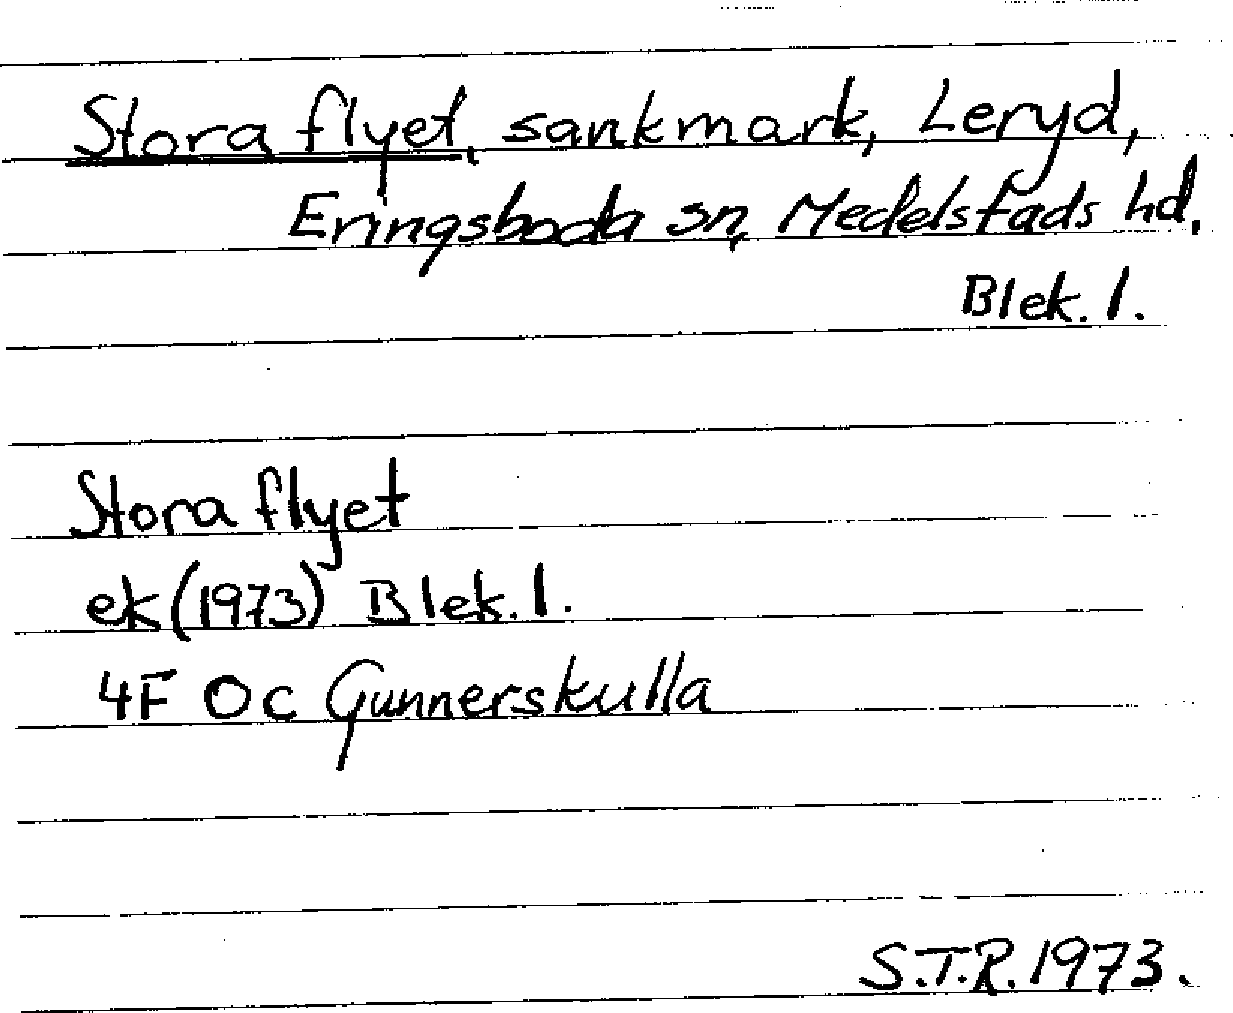 Stora flyet, sankmark, Leryd,
Eringsboda sn, Medelstads hd.
Blek. l.
Stora flyet
ek (1973) Blek. l.
4F 0c Gunnerskulla
S.T.R. 1973.